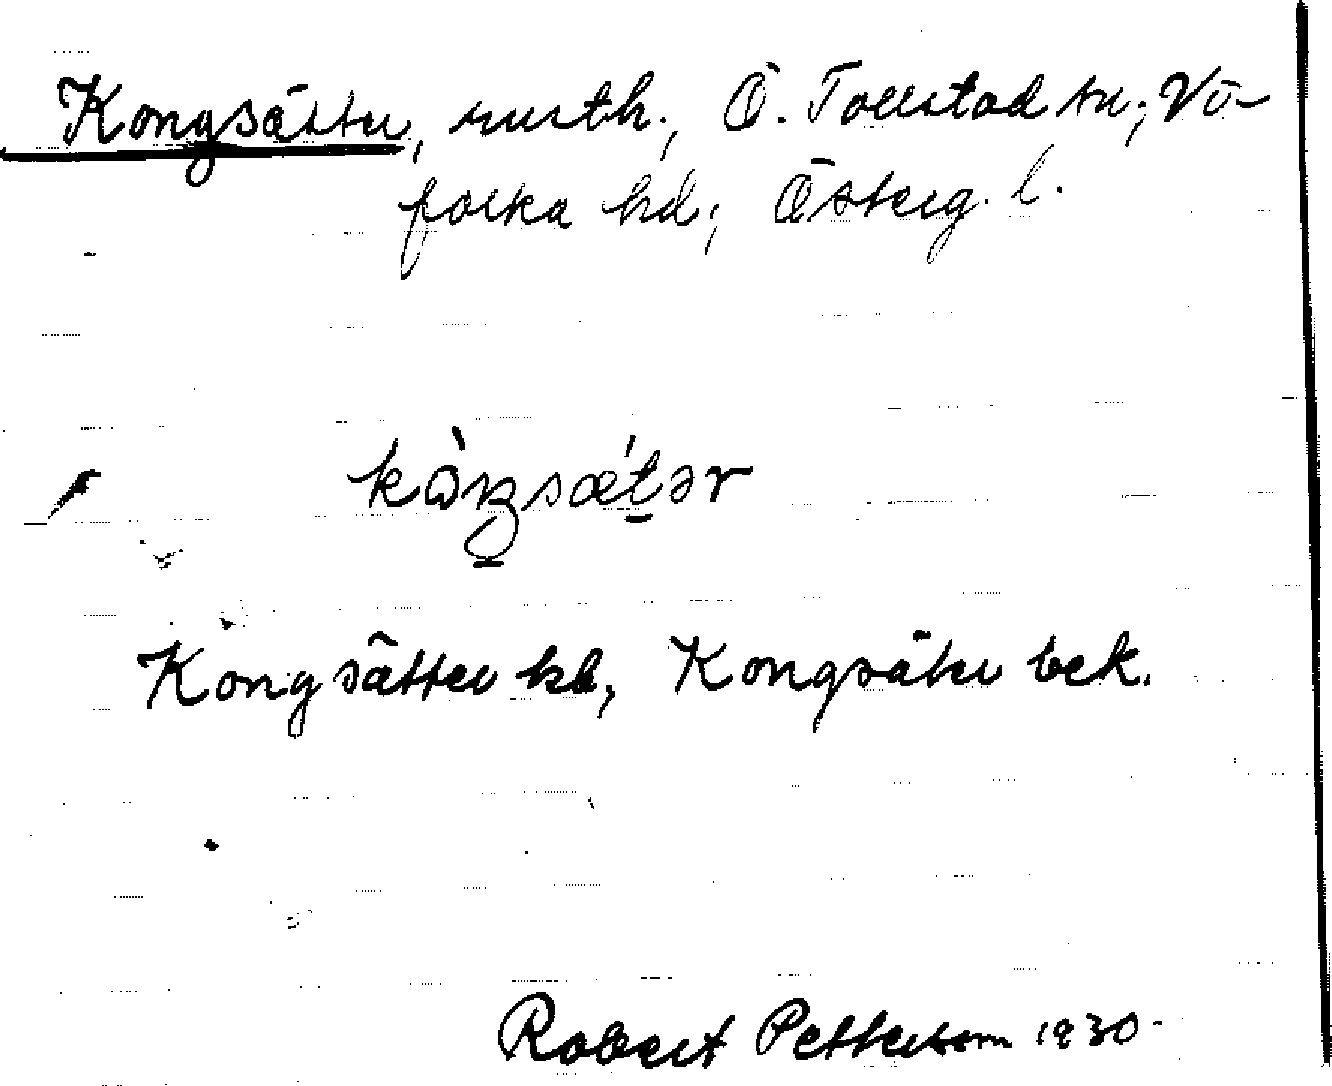 Kongsätter, Ö. Tollstad sn; Vi-
folka hd; Österg. l.
Kongsätter kb, Kongsäter bek.
Robert Pettersson 1930